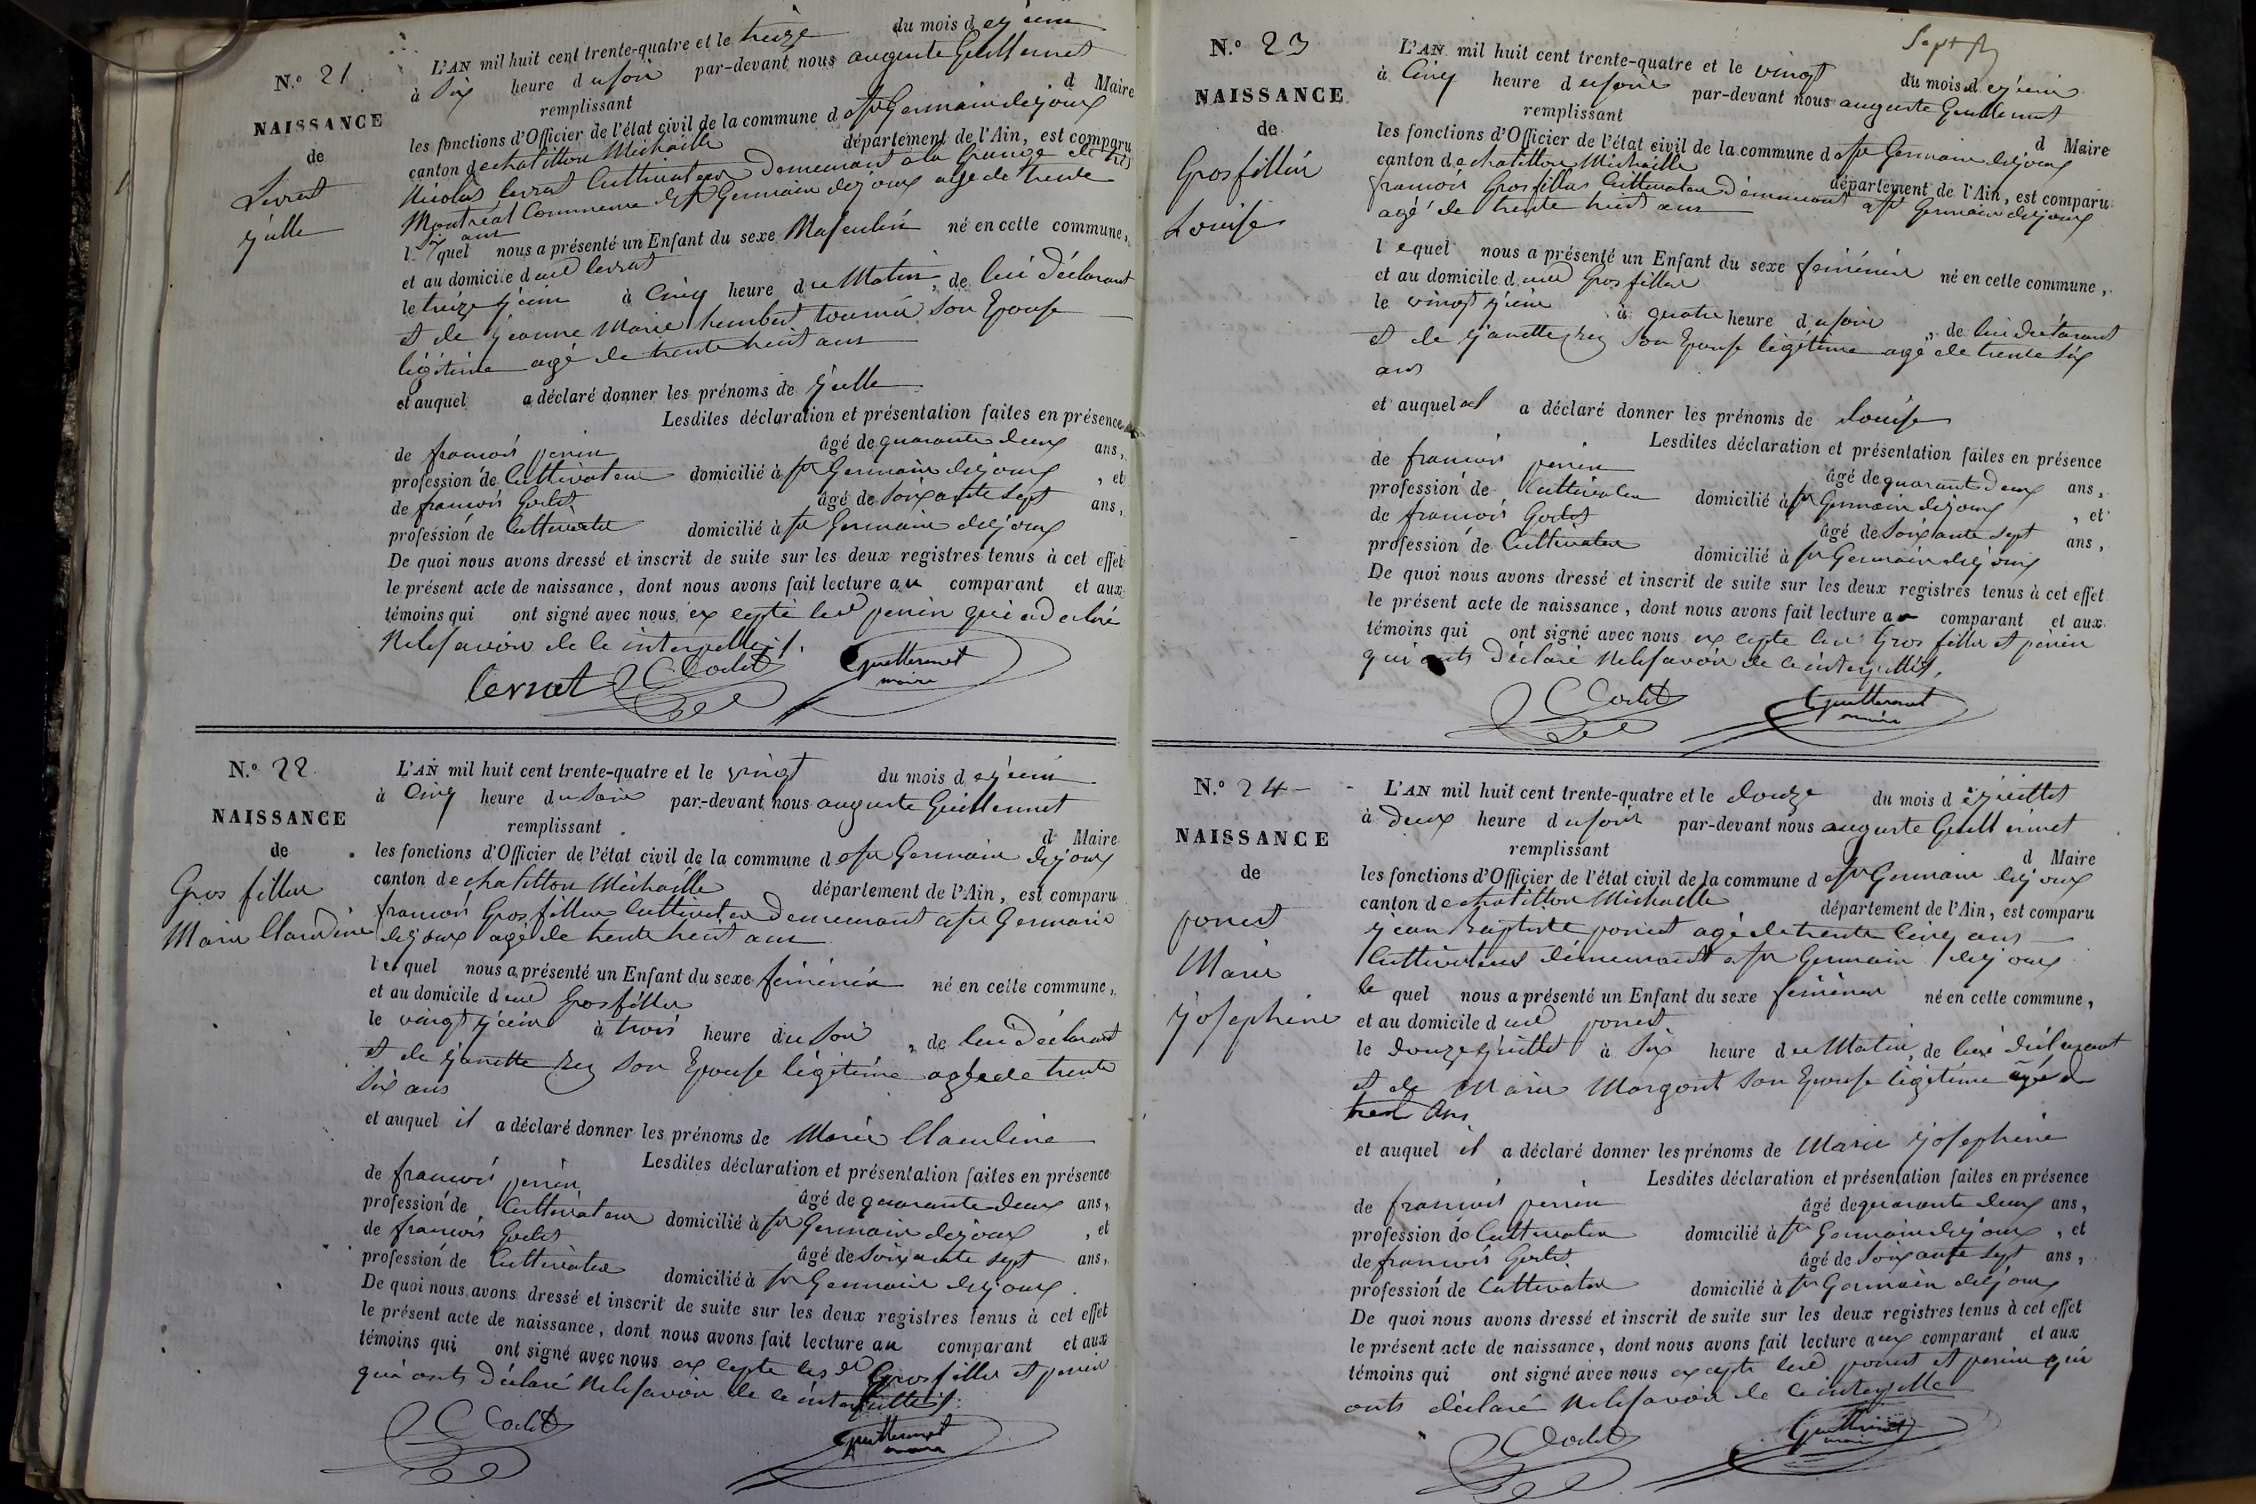 N.o 21
NAISSANCE
de
Levrat
julle
L'AN mil huit cent trente-quatre et le treize du mois de juin
à Six heure du soir par-devant nous auguste Guillermet
d Maire
remplissant
les fonctions d'Officier de l'état civil de la commune de St Germain de joux
canton de chatillon Michaille département de l'Ain, est comparu
Nicolas levrat Cultivateur Demeurant a la Grange de
Montréal Commune de St Germain de joux agé de trente
Six ans
l quel nous a présenté un Enfant du sexe Masculin né en cette commune,
et au domicile dud levrat
le treize juin à Cinq heure du Matin, de lui déclarant
et de jeanne Marie humbert tournié Son Epouse
légitime agé de trente huit ans
et auquel a déclaré donner les prénoms de julle
Lesdites déclaration et présentation faites en présence
de francois perrin âgé de quarante deux ans,
profession de Cultivateur domicilié à St Germain de joux, et
de francois Godet âgé de Soixante Sept ans,
profession de Cultivateur domicilié à St Germain de joux
De quoi nous avons dressé et inscrit de suite sur les deux registres tenus à cet effet
le présent acte de naissance, dont nous avons fait lecture au comparant et aux
témoins qui ont signé avec nous ex cepté led perrin qui a déclaré
Ne le savoir de ce interpellé.
levrat Godet Guillermet
maire
N.o 22
NAISSANCE
de
Gros filler
Marie Claudine
L'AN mil huit cent trente-quatre et le vingt du mois de juin
à Cinq heure du Soir par-devant nous auguste Guillermet
remplissant
d Maire
les fonctions d'Officier de l'état civil de la commune de St Germain de joux
canton de chatillon Michaille département de l'Ain, est comparu
francois Gros filler Cultivateur Demeurant a St Germain
de joux agé de trente huit ans
le quel nous a présenté un Enfant du sexe féminin né en cette commune,
et au domicile dud Grosfiller
le vingt juin à trois heure du Soir, de lui Déclarant
et de janette rey Son Epouse légitime agé de trente
Six ans
et auquel il a déclaré donner les prénoms de Marie Claudine
Lesdites déclaration et présentation faites en présence
de francois perrin âgé de quarante deux ans,
profession de Cultivateur domicilié à St Germain de joux, et
de francois Godet âgé de Soixante Sept ans,
profession de Cultivateur domicilié à St Germain de joux.
De quoi nous avons dressé et inscrit de suite sur les deux registres tenus à cet effet
le présent acte de naissance, dont nous avons fait lecture au comparant et aux
témoins qui ont signé avec nous ex cepté les d Gros filler et perrin
qui onts déclaré Ne le savoir de ce interpellés.
Godet Guillermet
maire
N.o 23
NAISSANCE
de
Gros fillin
Louise
L'AN mil huit cent trente-quatre et le vingt du mois de juin
à Cinq heure du soir par-devant nous auguste Guillermet
remplissant
d Maire
les fonctions d'Officier de l'état civil de la commune de St Germain de joux
canton de chatillon Michaille département de l'Ain, est comparu
francois Gros filler Cultivateur Demeurant a St Germain de joux
agé de trente huit ans
l equel nous a présenté un Enfant du sexe féminin né en cette commune,
et au domicile dud Gros filler
le vingt juin à quatre heure du soir, de lui déclarant
et de janette rey Son Epouse légitime agé de trente Six
ans
et auquel il a déclaré donner les prénoms de Louise
Lesdites déclaration et présentation faites en présence
de francois perrin âgé de quarante deux ans,
profession de Cultivateur domicilié à St Germain de joux, et
de francois Godet âgé de Soixante Sept ans,
profession de Cultivateur domicilié à St Germain de joux
De quoi nous avons dressé et inscrit de suite sur les deux registres tenus à cet effet
le présent acte de naissance, dont nous avons fait lecture au comparant et aux
témoins qui ont signé avec nous ex cepté led Gros filler et perrin
qui onts Déclaré Ne le savoir de ce interpellés.
Godet Guillermet
maire
N.o 24
NAISSANCE
de
ponet
Marie
josephine
L'AN mil huit cent trente-quatre et le Douze du mois de juillet
à Deux heure du soir par-devant nous auguste Guillermet
remplissant
d Maire
les fonctions d'Officier de l'état civil de la commune de St Germain de joux
canton de chatillon Michaille département de l'Ain, est comparu
jean Baptiste ponet agé de trente Cinq ans
Cultivateur demeurant a St Germain de joux
le quel nous a présenté un Enfant du sexe féminin né en cette commune,
et au domicile dud ponet
le Douze juillet à Six heure du Matin, de lui déclarant
et de Marie Margont Son Epouse légitime agé de
ans
et auquel il a déclaré donner les prénoms de Marie josephine
Lesdites déclaration et présentation faites en présence
de francois perrin âgé de quarante deux ans,
profession de Cultivateur domicilié à St Germain de joux, et
de francois Godet âgé de Soixante Sept ans,
profession de Cultivateur domicilié à St Germain de joux
De quoi nous avons dressé et inscrit de suite sur les deux registres tenus à cet effet
le présent acte de naissance, dont nous avons fait lecture aux comparant et aux
témoins qui ont signé avec nous excepté led ponet et perrin qui
onts déclaré Ne le savoir de ce interpellé
Godet Guillermet
maire